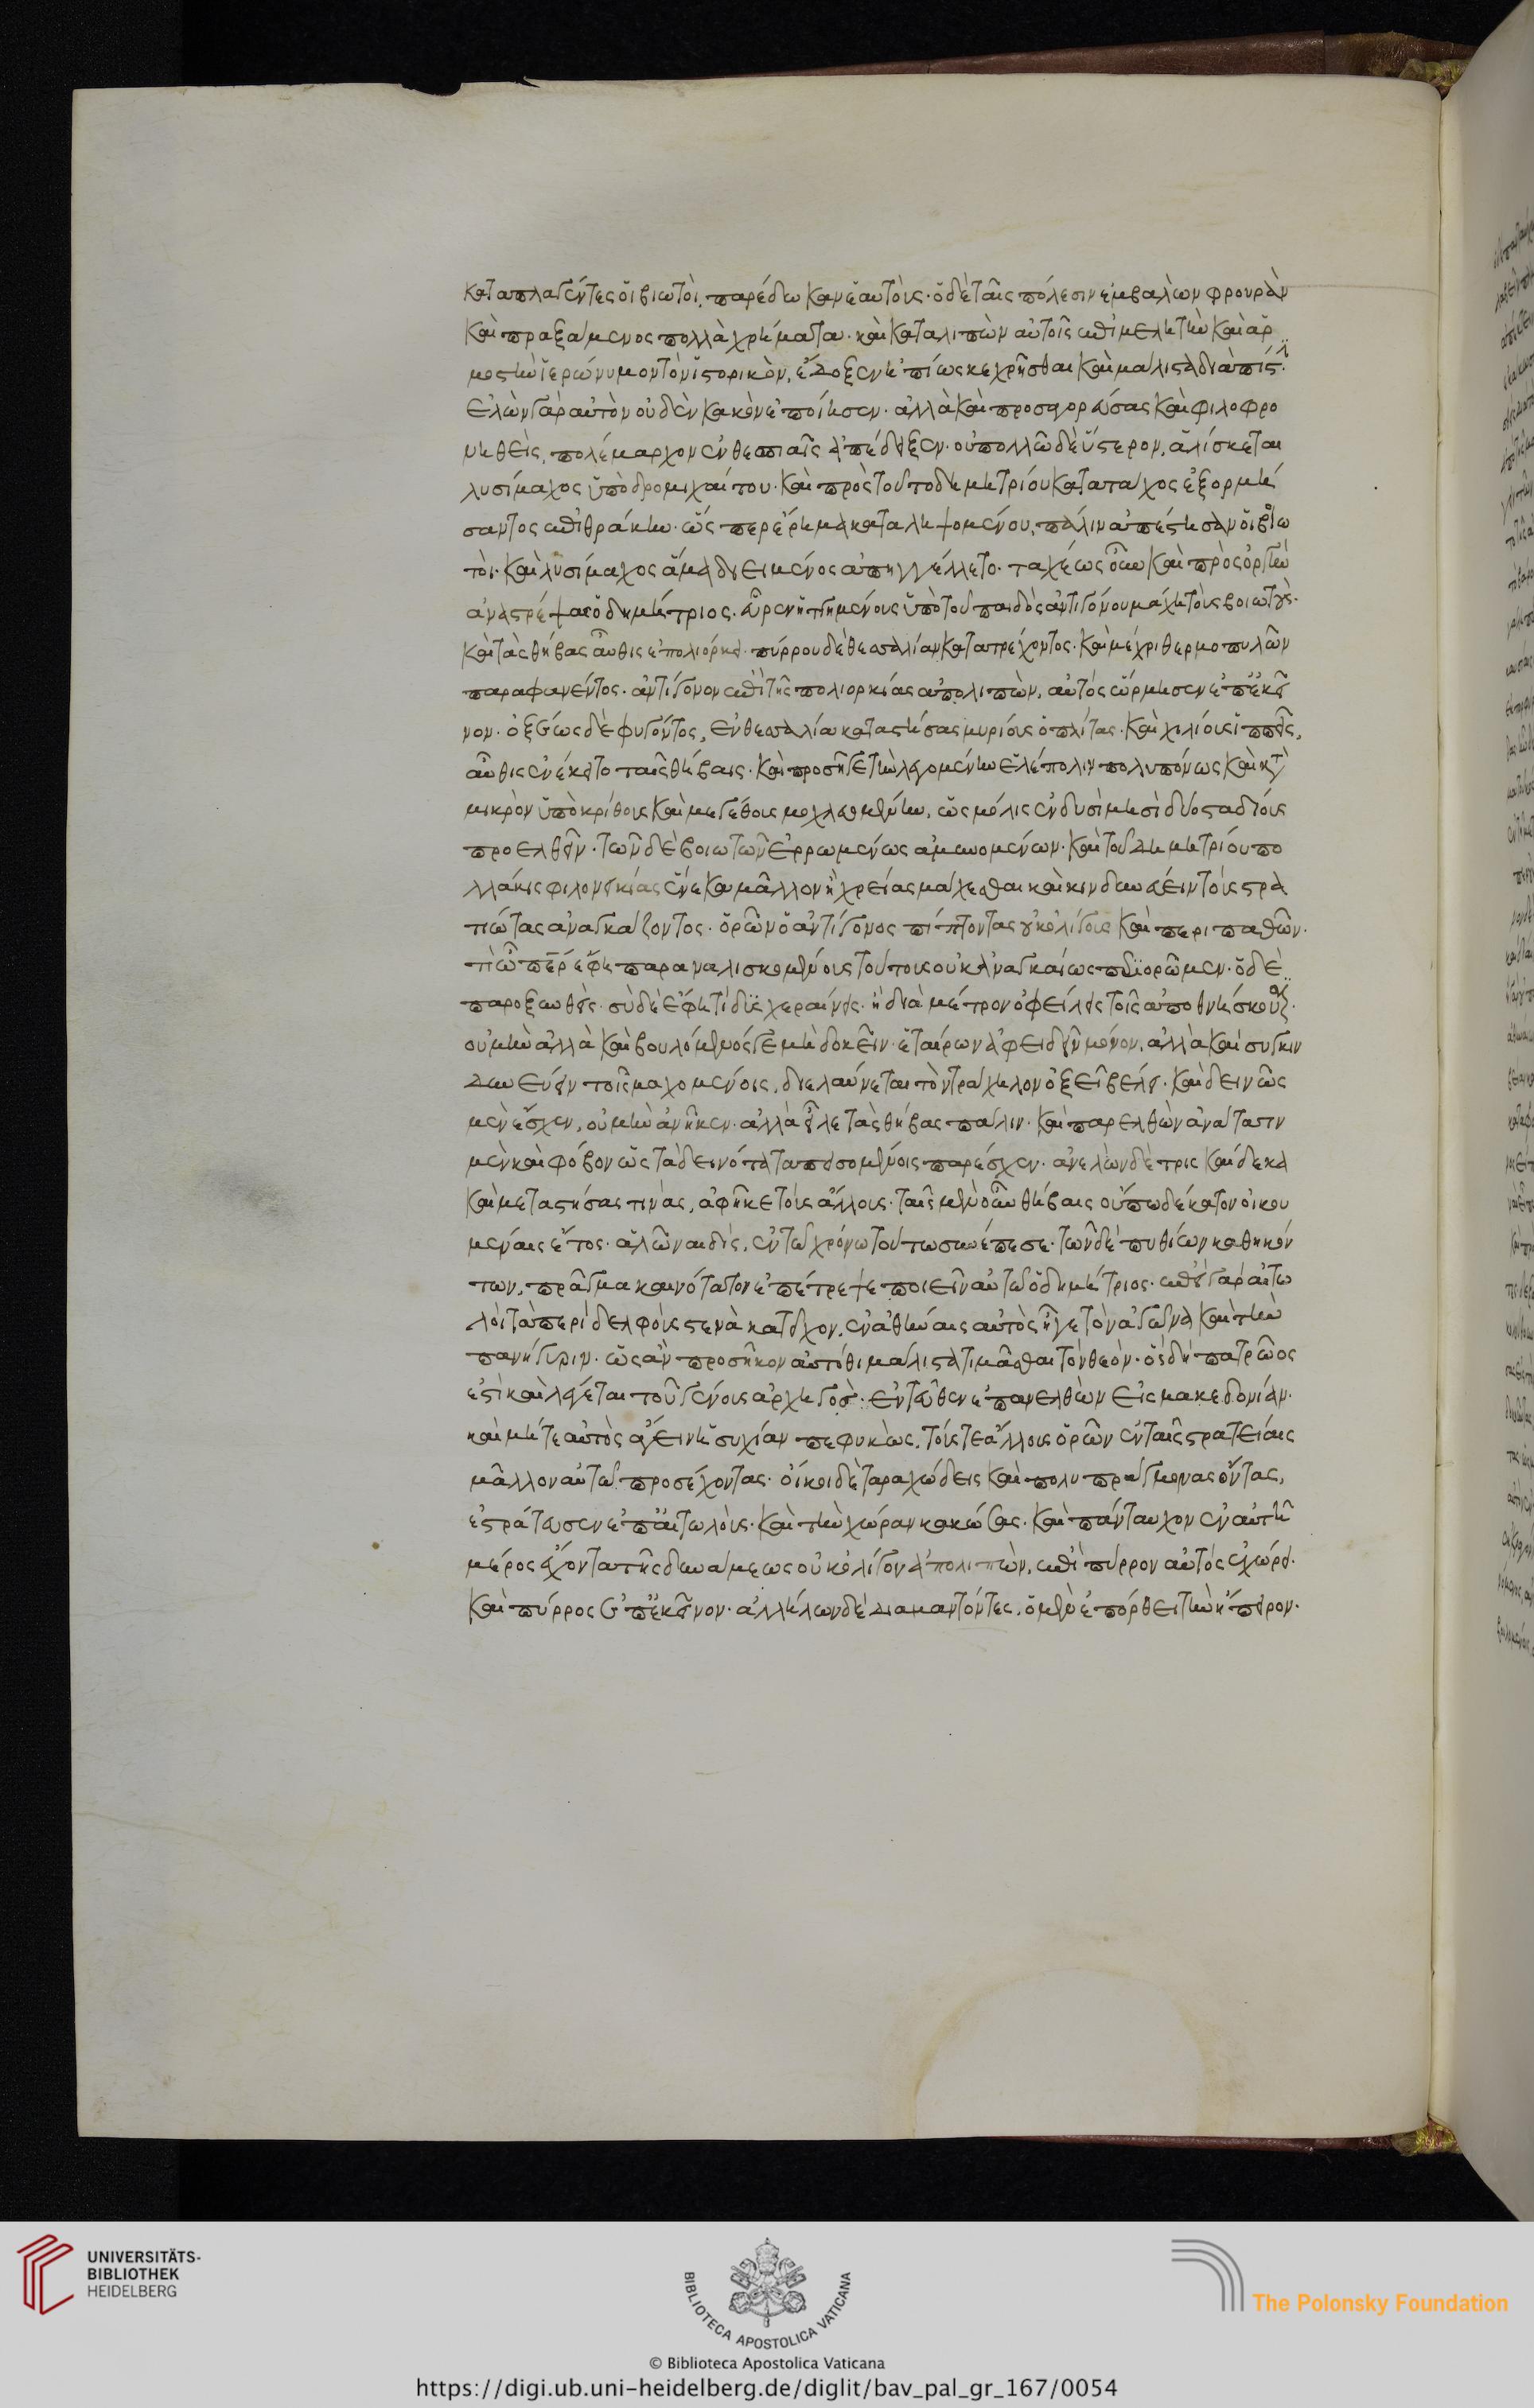 καταπλαγέντες οἱ βιωτοὶ, παρέδωκαν ἑαυτοὺς· ὁ δὲ ταῖς πόλεσιν ἐμβαλὼν φρουρὰν
καὶ πραξάμενος πολλὰ χρήματα· καὶ καταλιπὼν αὐτοῖς ἐπιμελητὴν καὶ ἁρ
μοστὴν ἱερώνυμον τὸν ἱστορικὸν, ἔδοξεν ἠπίως κεχρῆσθαι καὶ μάλιστα διὰ πίσ.
ἑλὼν γὰρ αὐτὸν οὐδὲν κακὸν ἐποίησεν· ἀλλὰ καὶ προσαγορεύσας καὶ φιλοφρο
νηθεὶς, πολέμαρχον ἐν θεσπιαῖς ἀπέδειξεν· οὐ πολλῶ δὲ ὕστερον, ἁλίσκεται
λυσίμαχος ὑπὸ δρομιχαίτου· καὶ πρὸς τοῦτο δημητρίου κατὰ τάχος ἐξορμή
σαντος ἐπὶ θράκην· ὥσπερ ἔρημα καταληψομένου, πάλιν ἀπέστησαν οἱ βοιω
τοὶ· καὶ λυσίμαχος ἅμα διειμένος ἀπηγγέλλετο· ταχέως οὖν καὶ πρὸς ὀργὴν
ἀναστρέψας ὁ δημήτριος· εὗρεν ἡττημένους ὑπὸ τοῦ παιδὸς ἀντιγόνου μάχη τοὺς βοιωτούς·
καὶ τὰς θήβας αὖθις ἐπολιόρκει· πύρρου δὲ θεσσαλίαν κατατρέχοντος· καὶ μέχρι θερμοπυλῶν
παραφανέντος· ἀντίγονον ἐπὶ τῆς πολιορκίας ἀπολιπὼν, αὐτὸς ὥρμησεν ἐπ' ἐκεῖ
νον· ὀξέως δὲ φυγόντος, ἐν θεσσαλία καταστήσας μυρίους ὁπλίτας· καὶ χιλίους ἱππεῖς,
αὖθις ἐνέκειτο ταῖς θήβαις· καὶ προσῆγε τὴν λεγομένην ἑλέπολιν πολυπόνως καὶ κατὰ
μικρὸν ὑπὸ κρίθους καὶ μεγέθους μοχλευομένην, ὡς μόλις ἐν δυσὶ μησὶ δύο σταδίους
προελθεῖν· τῶν δὲ βοιωτῶν ἐρρωμένως ἀμυνομένων· καὶ τοῦ δημητρίου πο
λλάκις φιλονεικίας ἕνεκα μᾶλλον ἢ χρείας μάχεσθαι καὶ κινδυνεύειν τοὺς στρα
τιώτας ἀναγκάζοντος· ὁρῶν ὁ ἀντίγονος πίπτοντας οὐκ ὀλίγους καὶ περιπαθῶν·
τί ὦ πάτερ ἔφη παραναλισκομένους τούτους οὐκ ἀναγκαίως περιορῶμεν· ὁ δὲ
παροξυνθεὶς· σὺ δὲ ἔφη τί δυσχεραίνεις· ἢ διάμετρον ὀφείλεις τοῖς ἀποθνήσκουσιν·
οὐ μὴν ἀλλὰ καὶ βουλόμενός γε μὴ δοκεῖν ἑταίρων ἀφειδεῖν μόνον, ἀλλὰ καὶ συγκιν
δυνεύειν τοῖς μαχομένοις, διελαύνεται τὸν τράχηλον ὀξεῖ βέλει· καὶ δεινῶς
μὲν ἔσχεν, οὐ μὴν ἀνῆκεν· ἀλλὰ εἷλε τὰς θήβας πάλιν· καὶ παρελθὼν ἀνάτασιν
μὲν καὶ φόβον ὡς τὰ δεινότατα πεισομένοις παρέσχεν· ἀνελὼν δὲ τρὶς καὶ δεκα
καὶ μεταστήσας τινὰς, ἀφῆκε τοὺς ἄλλους· ταῖς μὲν οὖν θήβαις οὔπω δέκατον οἰκου
μέναις ἔτος· ἁλῶναι δὶς, ἐν τῶ χρόνω τούτω συνέπεσε· τῶν δὲ πυθίων καθηκόν
των, πρᾶγμα καινότατον ἐπέτρεψε ποιεῖν αὑτῶ ὁ δημήτριος· ἐπεὶ γὰρ αἰτω
λοὶ τὰ περὶ δελφοὺς στενὰ κατεῖχον, ἐν ἀθήναις αὐτὸς ἦγε τὸν ἀγῶνα καὶ τὴν
πανήγυριν· ὡς ἂν προσῆκον αὐτόθι μάλιστα τιμᾶσθαι τὸν θεὸν· ὃς δὴ πατρῶος
ἐστὶ καὶ λέγεται τοῦ γένους ἀρχηγός· ἐντεῦθεν ἐπανελθὼν εἰς μακεδονίαν·
καὶ μήτε αὐτὸς ἄγειν ἡσυχίαν πεφυκὼς, τούς τε ἄλλους ὁρῶν ἐν ταῖς στρατείαις
μᾶλλον αὐτῶ προσέχοντας· οἴκοι δὲ ταραχώδεις καὶ πολυπράγμονας ὄντας,
ἐστράτευσεν ἐπ' αἰτωλοὺς· καὶ τὴν χώραν κακώσας· καὶ πάνταυχον ἐν αὐτῆ
μέρος ἔχοντα τῆς δυνάμεως οὐκ ὀλίγον ἀπολιπὼν, ἐπὶ πύρρον αὐτὸς ἐχώρει·
καὶ πύρρος ἐπ' ἐκεῖνον· ἀλλήλων δὲ διαμαρτόντες, ὁ μὲν ἐπόρθει τὴν ἤπειρον·
UNIVERSITÄTS-
BIBLIOTHEK
HEIDELBERG
BIBLIOTECA APOSTOLICA VATICANA
The Polonsky Foundation
© Biblioteca Apostolica Vaticana
https://digi.ub.uni-heidelberg.de/diglit/bav_pal_gr_167/0054